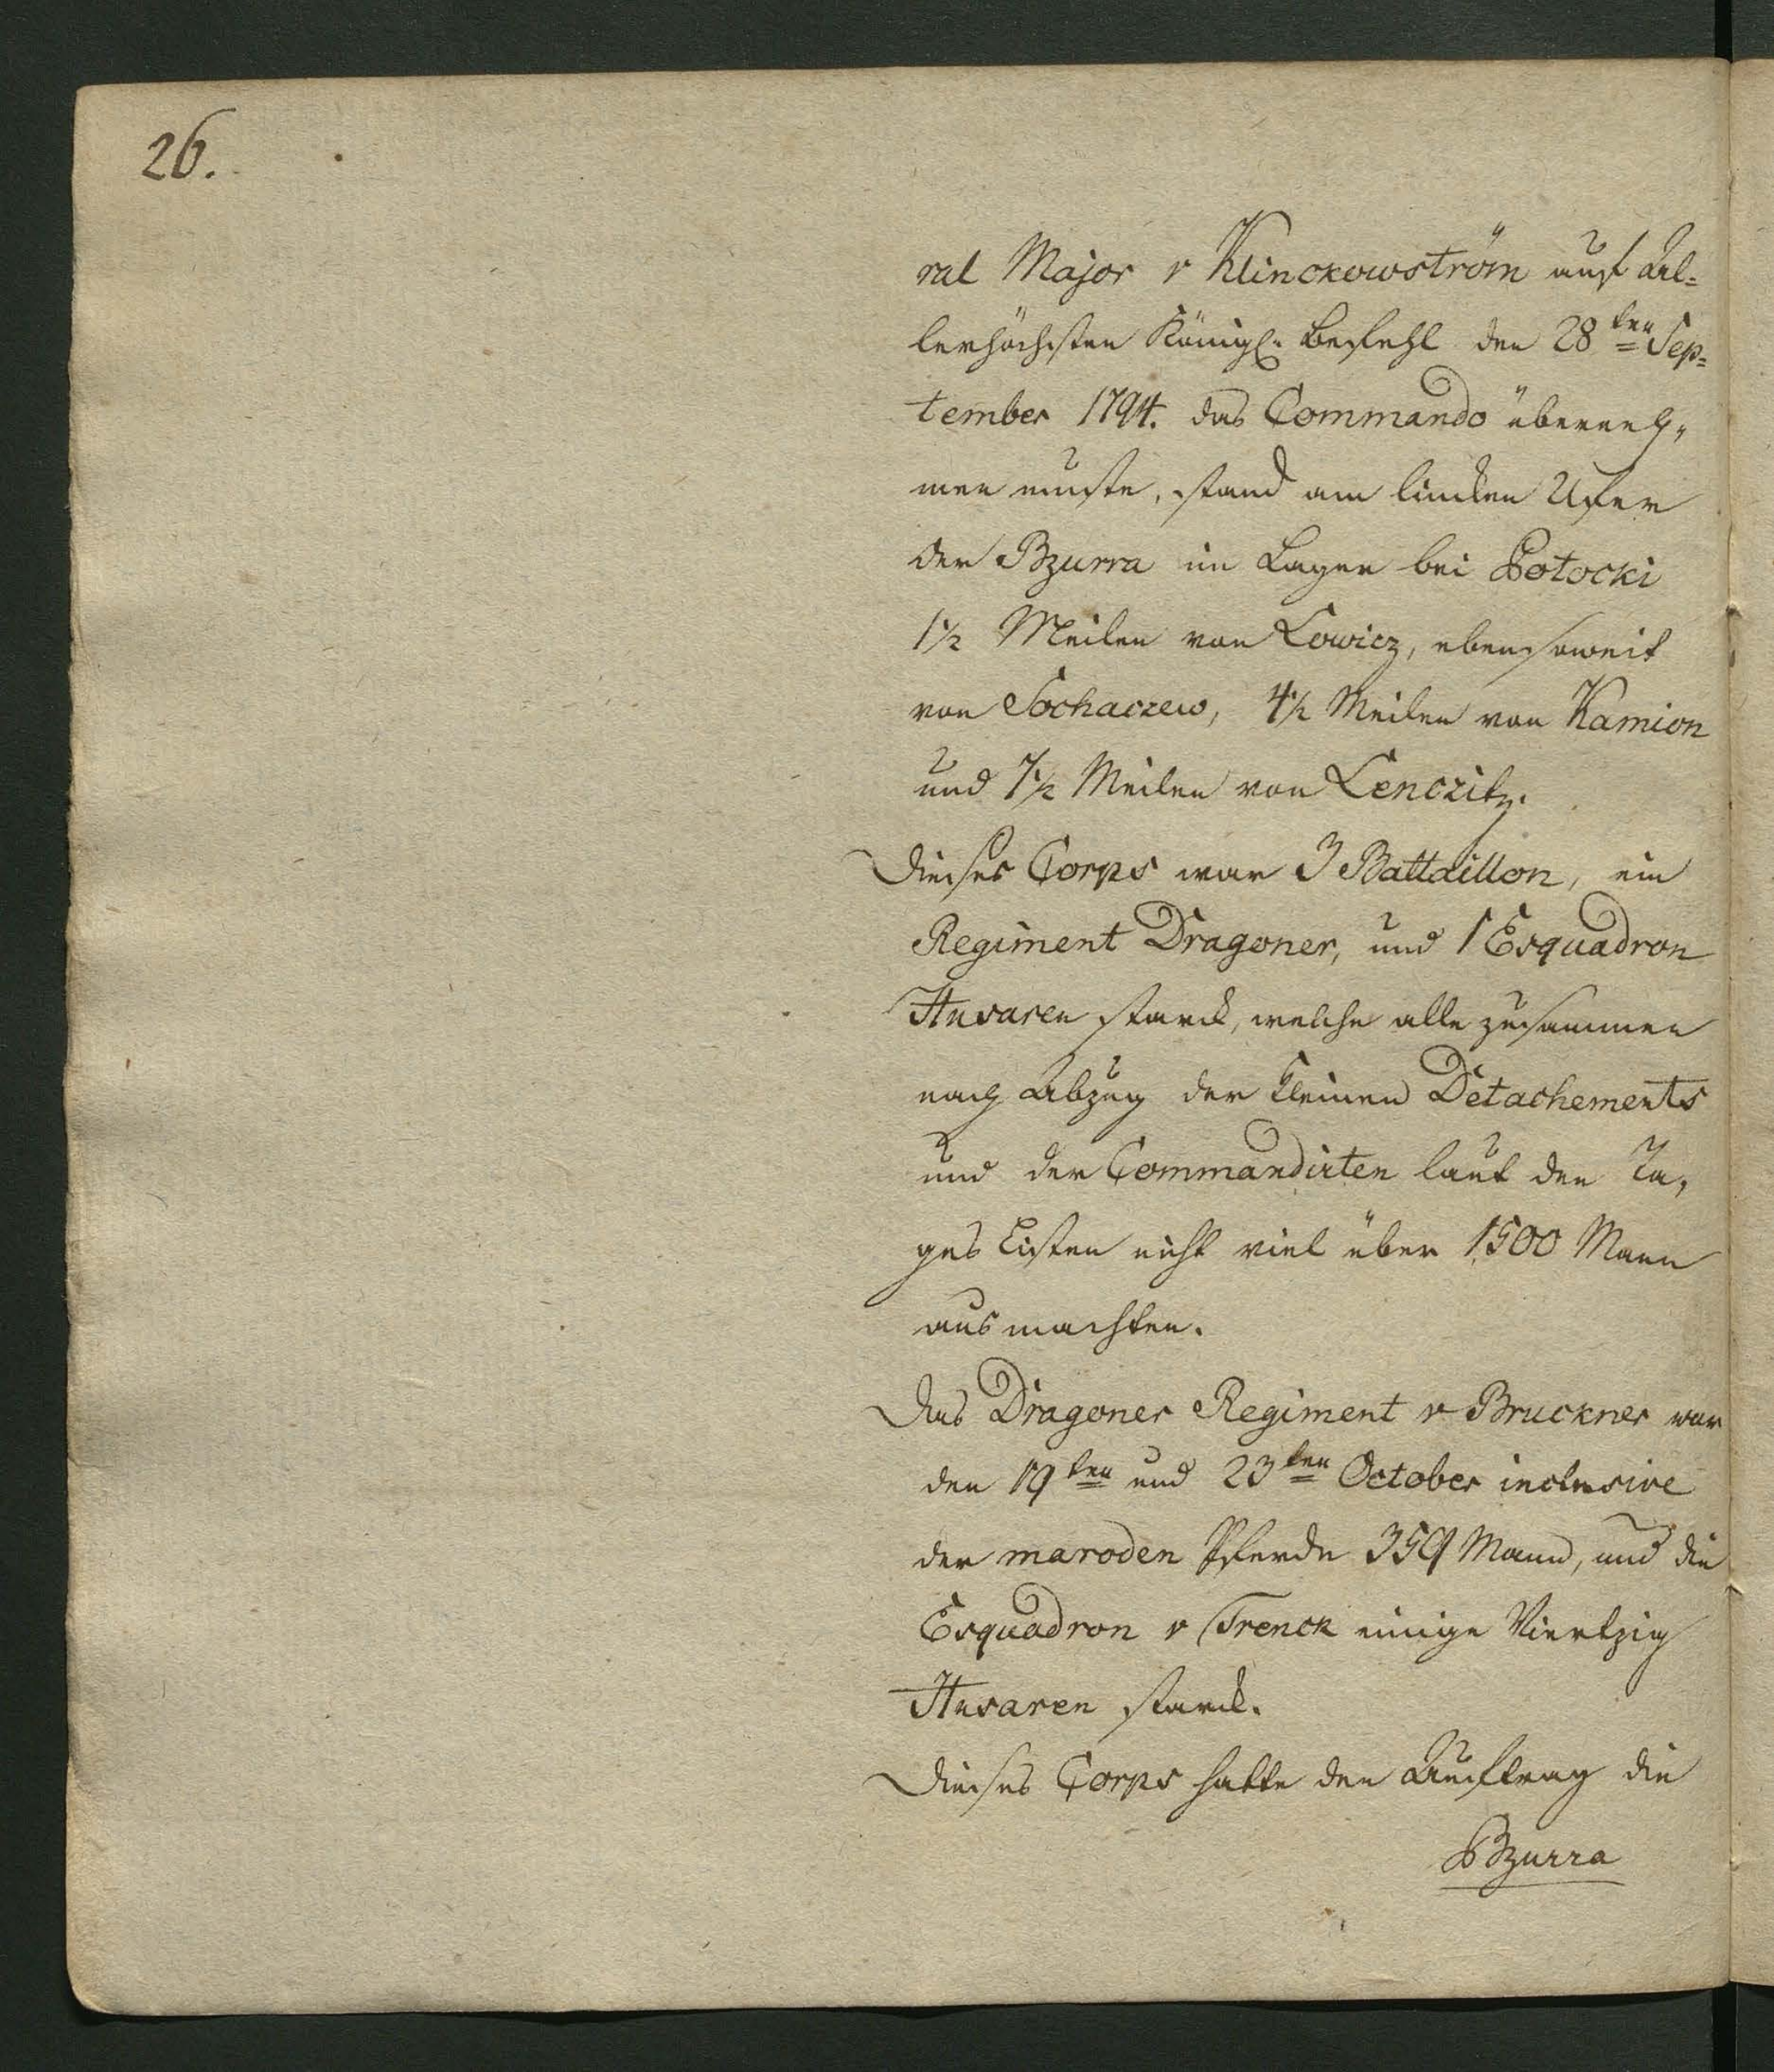 26.
ral Major v Klinckowström auf Al=
lerhöchsten Königl. Befehl den 28ten Sep=
tember 1794. das Commando überneh=
men muste, stand am lincken Ufer
der Bzurra im Lager bei Potocki
1½ Meilen von Lowicz, ebensoweit
von Sochaczew, 4½ Meilen von Kamion
und 7½ Meilen von Lenczitz.
Dieses Corps war 3 Battaillon, ein
Regiment Dragoner, und 1 Esquadron
Husaren starck, welche alle zusammen
nach Abzug der kleinen Detachements
und der Commandirten laut den Ta=
ges Listen nicht viel über 1500 Mann
ausmachten.
Das Dragoner Regiment v Bruckner war
den 19ten und 23ten October inclusive
der maroden Pferde 359 Mann, und die
Esquadron v Trenck einige Viertzig
Husaren starck.
Dieses Corps hatte den Auftrag die
Bzurra